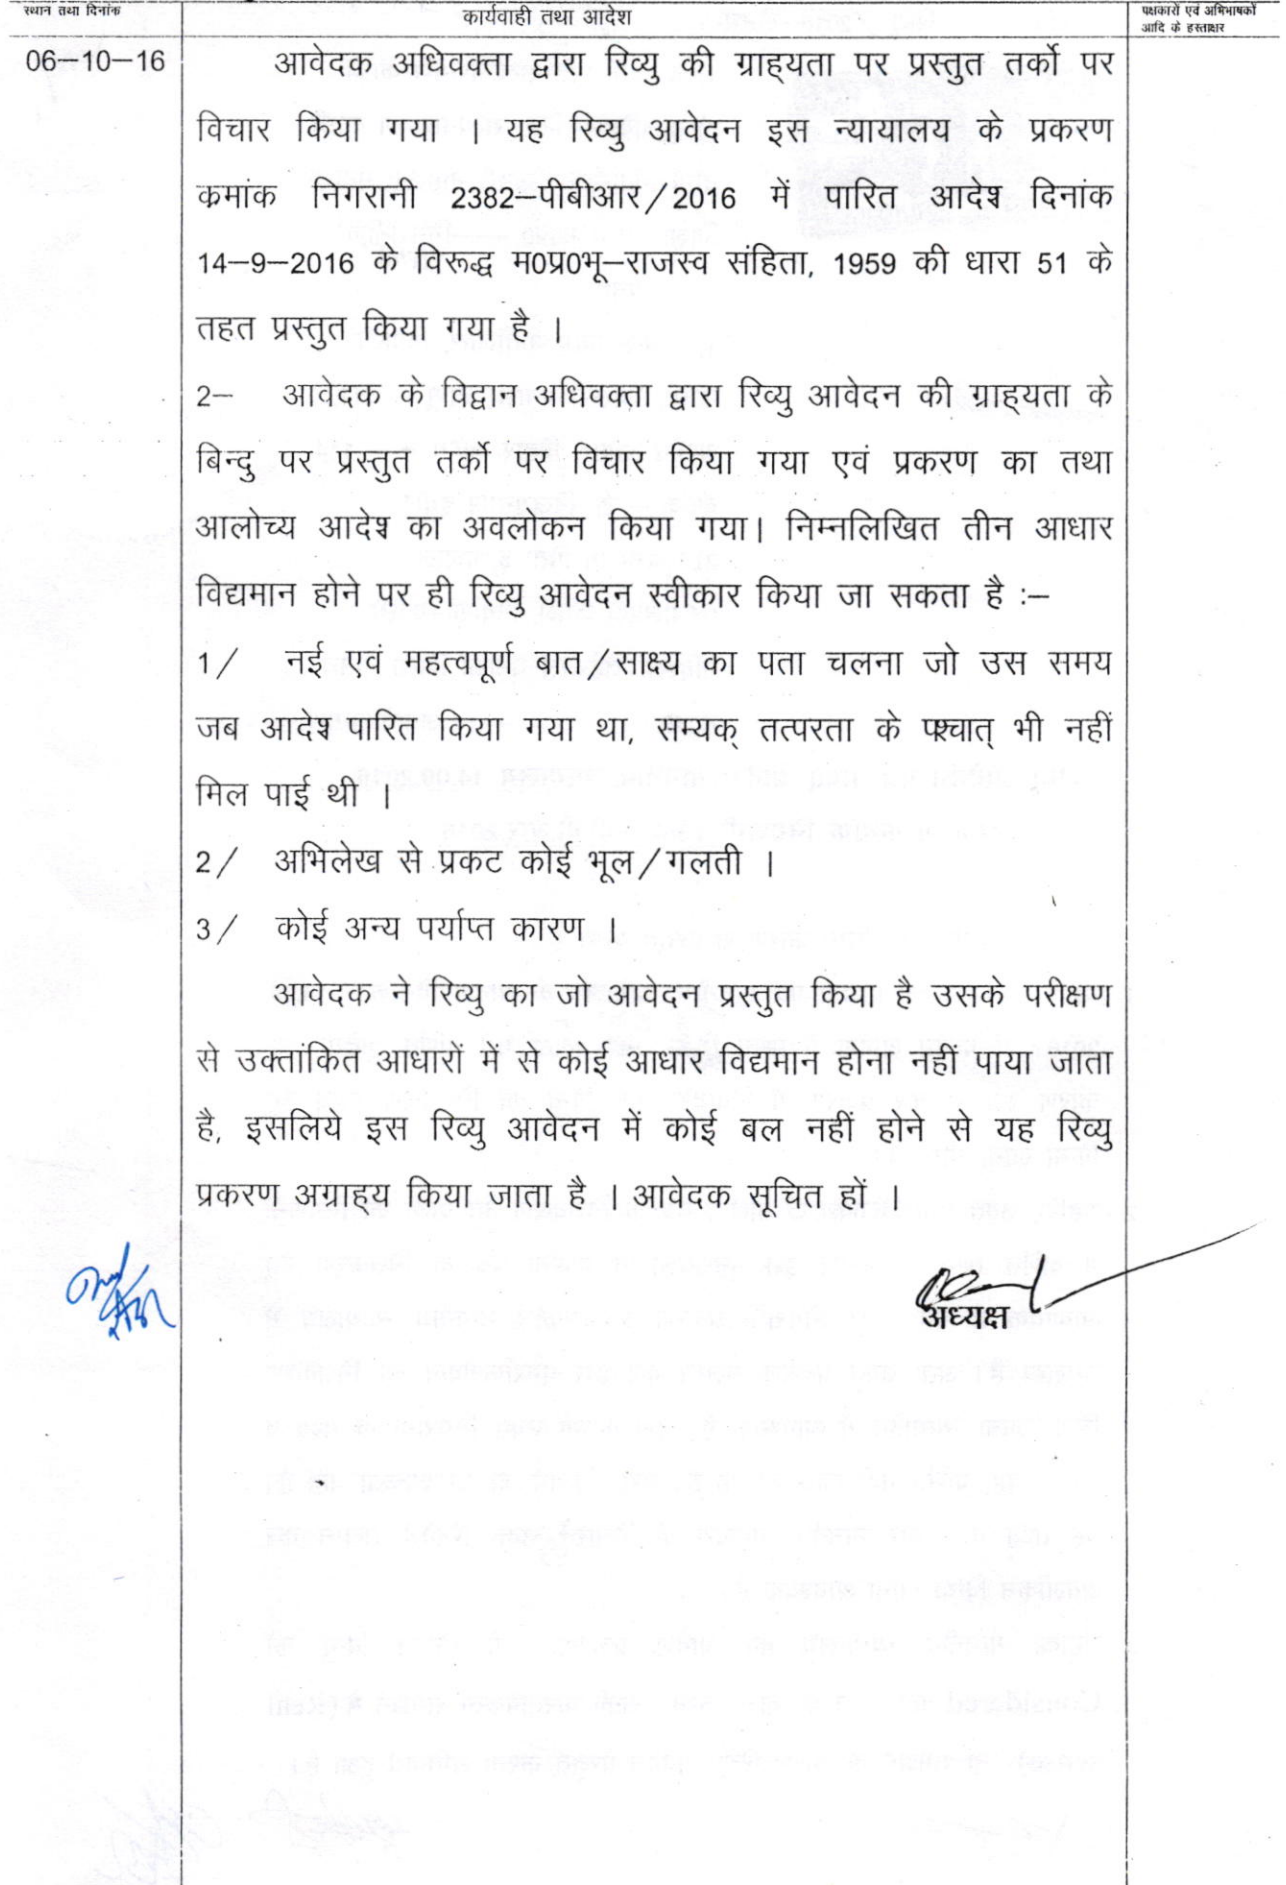 स्थान तथा दिनांक
कार्यवाही तथा आदेश
पक्षकारों एवं अभिभाषकों
आदि के हस्ताक्षर
06–10–16
आवेदक अधिवक्ता द्वारा रिव्यु की ग्राह्यता पर प्रस्तुत तर्को पर
विचार किया गया । यह रिव्यु आवेदन इस न्यायालय के प्रकरण
कमांक निगरानी 2382–पीबीआर/2016 में पारित आदेश दिनांक
14–9–2016 के विरूद्ध म0प्र0भू–राजस्व संहिता, 1959 की धारा 51 के
तहत प्रस्तुत किया गया है ।
2– आवेदक के विद्वान अधिवक्ता द्वारा रिव्यु आवेदन की ग्राह्यता के
बिन्दु पर प्रस्तुत तर्को पर विचार किया गया एवं प्रकरण का तथा
आलोच्य आदेश का अवलोकन किया गया। निम्नलिखित तीन आधार
विद्यमान होने पर ही रिव्यु आवेदन स्वीकार किया जा सकता है :–
1/ नई एवं महत्वपूर्ण बात/साक्ष्य का पता चलना जो उस समय
जब आदेश पारित किया गया था, सम्यक् तत्परता के पश्चात् भी नहीं
मिल पाई थी ।
2/ अभिलेख से प्रकट कोई भूल/गलती ।
3/ कोई अन्य पर्याप्त कारण ।
आवेदक ने रिव्यु का जो आवेदन प्रस्तुत किया है उसके परीक्षण
से उक्तांकित आधारों में से कोई आधार विद्यमान होना नहीं पाया जाता
है, इसलिये इस रिव्यु आवेदन में कोई बल नहीं होने से यह रिव्यु
प्रकरण अग्राहय किया जाता है । आवेदक सूचित हों ।
अध्यक्ष